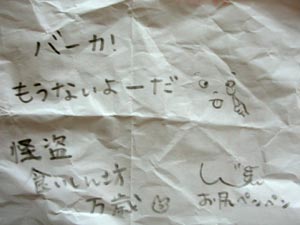 バーカ!
もうないよーだ
怪盗
食いしん坊
万歳
お尻ペンペン